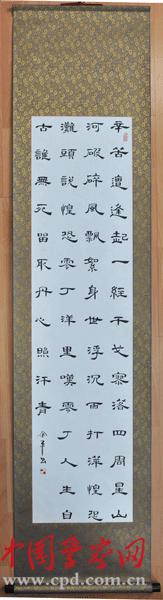 辛苦遭逢起一經干戈寥落四周星山
河破碎風飄絮身世浮沉雨打萍惶恐
灘頭說惶恐零丁洋里嘆零丁人生自
古誰無死留取丹心照汗青
中国警察网
www.cpd.com.cn